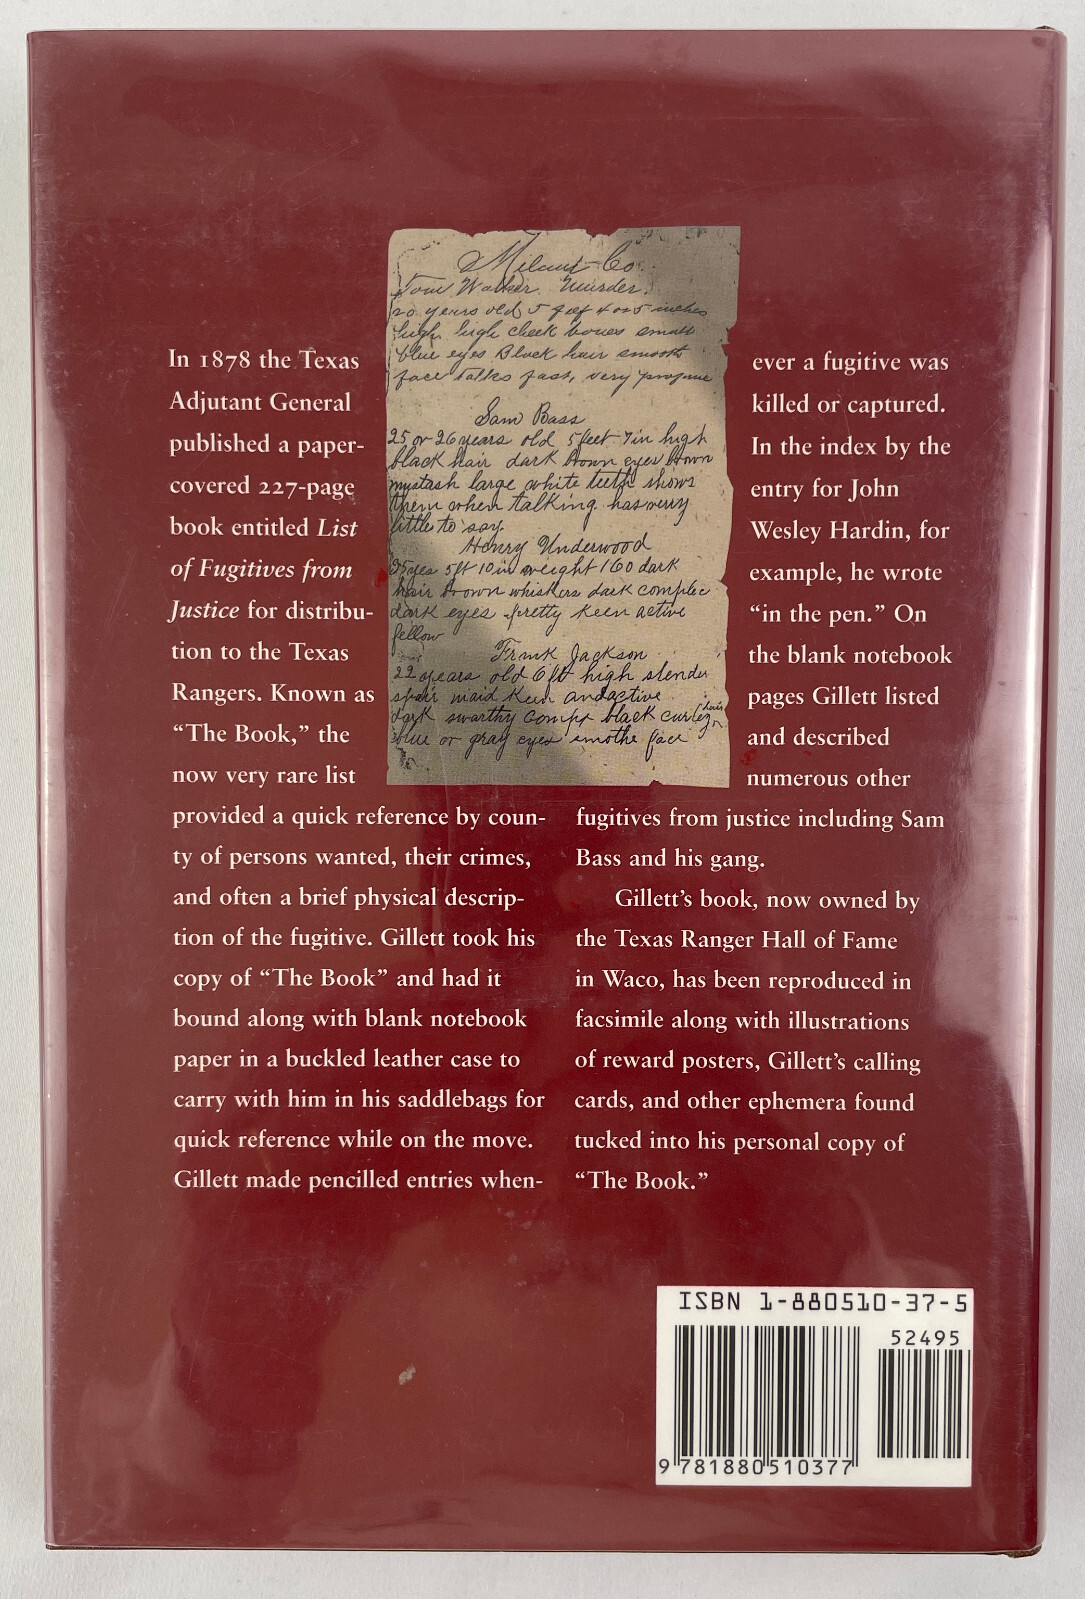 Milam Co.
Tom Walker. Murder.
20 years old 5 feet 4 or 5 inches
high high cheek bones small
blue eyes Black hair smooth
face talks fast, very profane
Sam Bass
25 or 26 years old 5 feet 7 in high
black hair dark brown eyes brown
mustash large white teeth shows
them when talking. has very
little to say.
Henry Underwood
5 ft 10 in weight 160 dark
hair brown whiskers dark complec
dark eyes pretty keen active
fellow
Frank Jackson
22 years old 6 ft high slender
keen and active
dark swarthy black curley hair
blue or gray eyes smothe face
In 1878 the Texas
Adjutant General
published a paper-
covered 227-page
book entitled List
of Fugitives from
Justice for distribu-
tion to the Texas
Rangers. Known as
“The Book,” the
now very rare list
provided a quick reference by coun-
ty of persons wanted, their crimes,
and often a brief physical descrip-
tion of the fugitive. Gillett took his
copy of “The Book” and had it
bound along with blank notebook
paper in a buckled leather case to
carry with him in his saddlebags for
quick reference while on the move.
Gillett made pencilled entries when-
ever a fugitive was
killed or captured.
In the index by the
entry for John
Wesley Hardin, for
example, he wrote
“in the pen.” On
the blank notebook
pages Gillett listed
and described
numerous other
fugitives from justice including Sam
Bass and his gang.
Gillett’s book, now owned by
the Texas Ranger Hall of Fame
in Waco, has been reproduced in
facsimile along with illustrations
of reward posters, Gillett’s calling
cards, and other ephemera found
tucked into his personal copy of
“The Book.”
ISBN 1-880510-37-5
52495
9 781880 510377